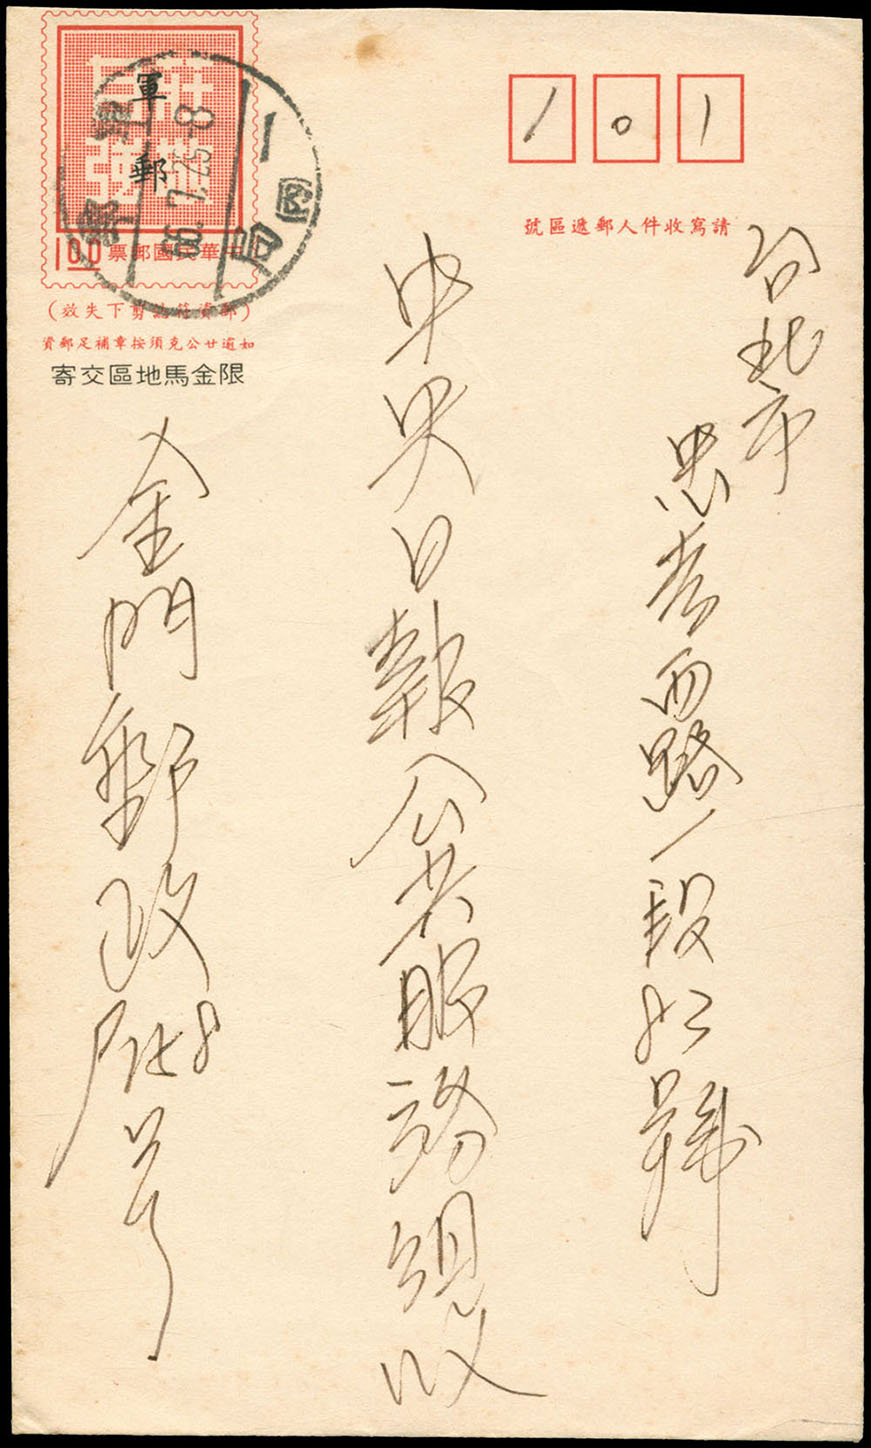 莊敬
自強
軍郵
1.00 中華民國郵票
66.7.25.-8
一局
(郵資符誌剪下失效)
如逾廿公克須按章補足郵資
限金馬地區交寄
101
請寫收件人郵遞區號
台北市
忠孝西路一段號
中央日報公共服務組收
金門郵政號